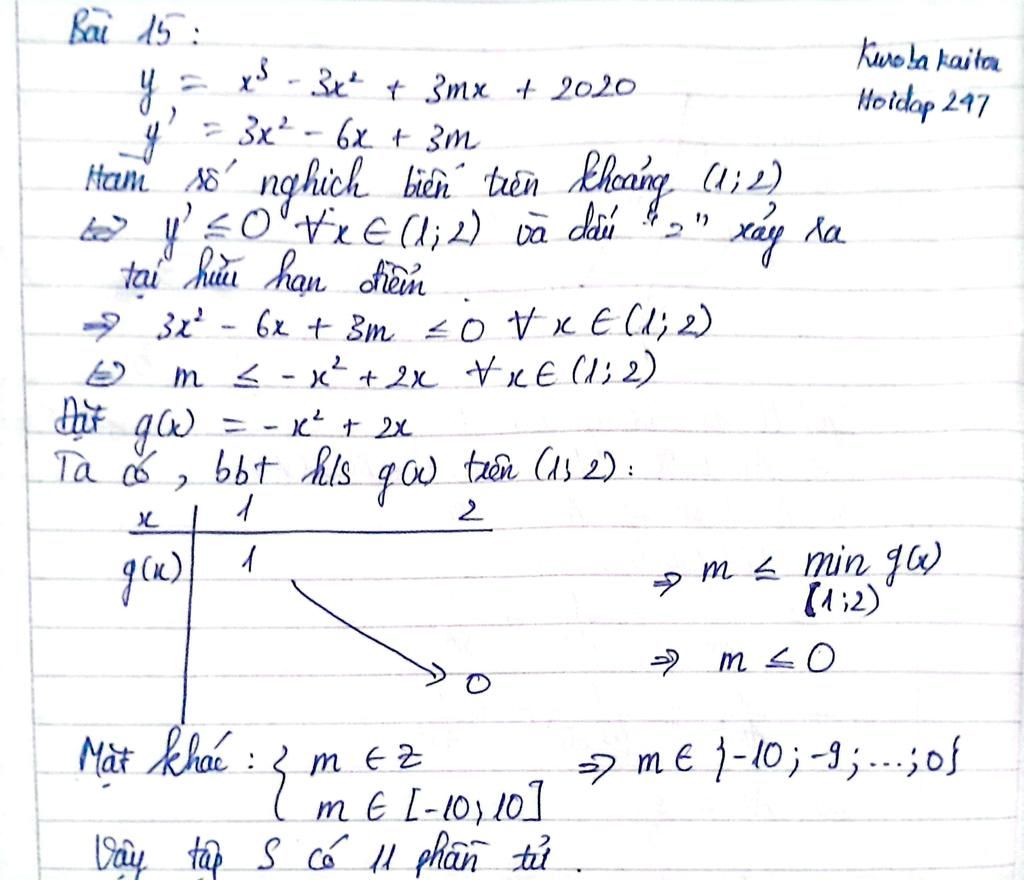 Bài 15:
Kuroba kaitou
Hoidap 247
y = x³ - 3x² + 3mx + 2020
y' = 3x² - 6x + 3m
Hàm số nghịch biến trên khoảng (1;2)
⇔ y' ≤ 0 ∀x ∈ (1;2) và dấu "=" xảy ra
tại hữu hạn điểm.
⇒ 3x² - 6x + 3m ≤ 0 ∀x ∈ (1;2)
⇔ m ≤ -x² + 2x ∀x ∈ (1;2)
Đặt g(x) = -x² + 2x
Ta có, bbt h/s g(x) trên (1;2):
x 1 2
g(x) 1 0
⇒ m ≤ min g(x)
[1;2)
⇒ m ≤ 0
Mặt khác: { m ∈ Z ⇒ m ∈ {-10;-9;...;0}
m ∈ [-10;10]
Vậy tập S có 11 phần tử.